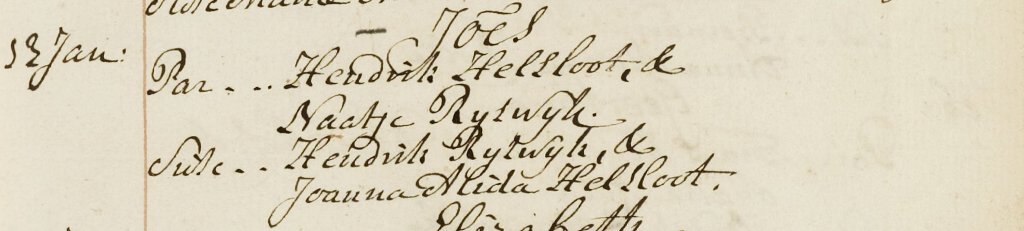 Joēs
13 Jan:
Par . . . Hendrik Helsloot, &
Naatje Ryswyk.
Susc . . Hendrik Ryswyk, &
Joanna Alida Helsloot.
Elizabeth